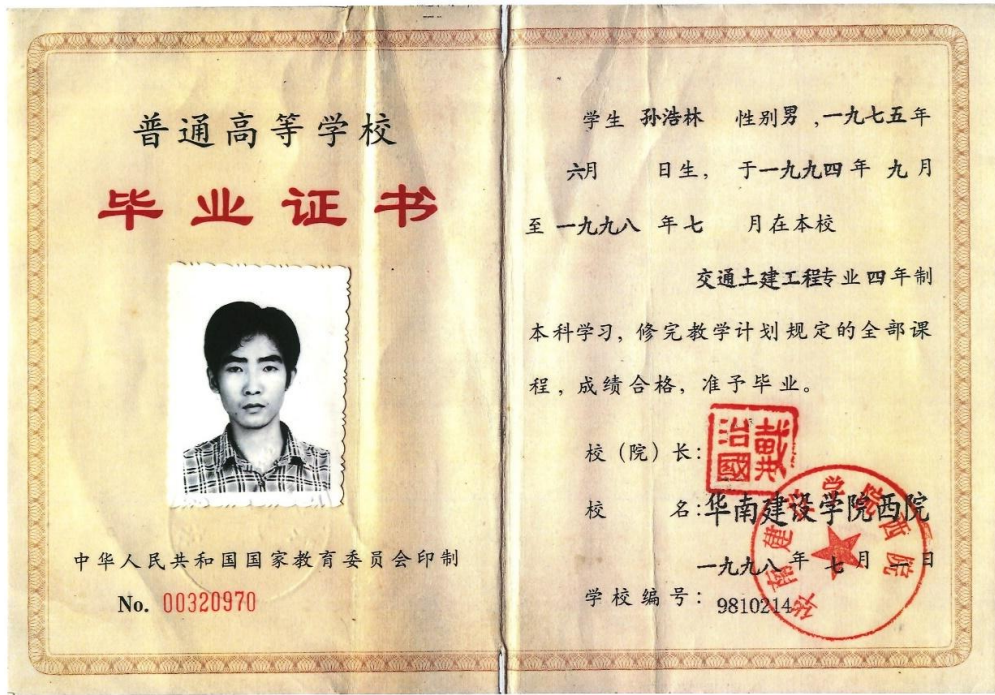 普通高等学校
毕业证书
中华人民共和国国家教育委员会印制
No. 00320970
学生 孙浩林 性别男,一九七五年
六月 日生, 于一九九四年 九月
至一九九八 年七 月在本校
交通土建工程专业四年制
本科学习, 修完教学计划规定的全部课
程, 成绩合格, 准予毕业。
校(院)长:
戴治國
校 名:华南建设学院西院
华南建设学院西院
一九九八年七月一日
学校编号: 9810214